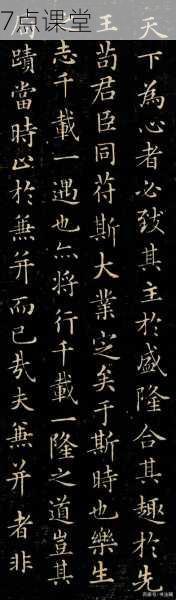 7点课堂
天下為心者必致其主於盛隆合其趣於先
王苟君臣同苻斯大業定矣于斯時也樂生
志千載一遇也亦將行千載一隆之道豈其
蹟當時止於兼并而已哉夫兼并者非